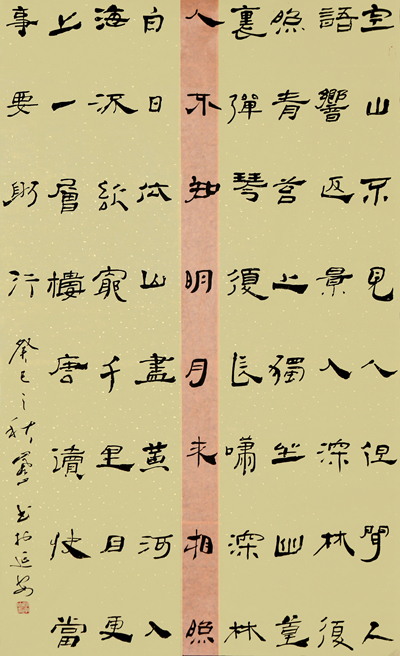 空山不見人但聞人
語響返景入深林復
照青苔上獨坐幽篁
裏彈琴復長嘯深林
人不知明月來相照
白日依山盡黃河入
海流欲窮千里目更
上一層樓唐讀快當
事要躬行
癸巳之秋書於延安